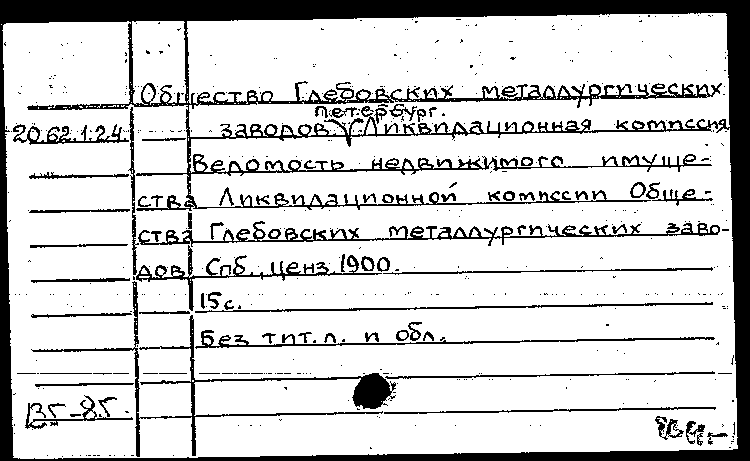 Общество Глебовских металлургических
Петербург.
20.62.1.24. заводов. Ликвидационная комиссия
Ведомость недвижимого имуще-
ства Ликвидационной комиссии Обще-
ства Глебовских металлургических заво-
дов. Спб., ценз. 1900.
15 с.
Без тит. л. и обл.